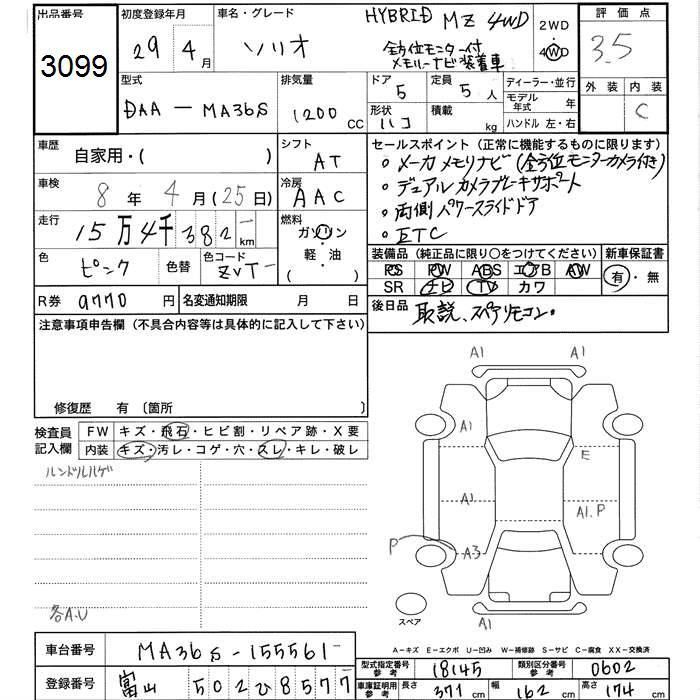 出品番号 初度登録年月 車名・グレード HYBRID MZ 4WD 2WD 評価点
3099 29年 4月 ソリオ 全方位モニター付 4WD 3.5
メモリーナビ装着車
型式 排気量 ドア 定員 ディーラー・並行 外装 内装
DAA-MA36S 1200cc 5 5人 モデル年式 年 C
形状 積載 ハコ kg ハンドル 左・右
車歴 自家用・( ) シフト AT セールスポイント(正常に機能するものに限ります)
車検 8年 4月(25日) 冷房 AAC 。メーカメモリナビ(全方位モニターカメラ付き)
。デュアルカメラブレーキサポート
走行 15万4千382km 燃料 ガソリン 。両側パワースライドドア
軽・油 。ETC
( )
色 ピンク 色替 色コード ZVT 装備品(純正品に限り○をつけてください) 新車保証書
PS PW ABS エアB AW 有・無
SR ナビ TV カワ
R券 9770円 名変通知期限 月 日 後日品 取説、スペアリモコン。
注意事項申告欄(不具合内容等は具体的に記入して下さい)
修復歴 有〔箇所 〕
検査員 FW キズ・飛石・ヒビ割・リペア跡・X要
記入欄 内装 キズ・汚レ・コゲ・穴・スレ・キレ・破レ
ハンドルハゲ
A1 A1
A1 E
A1 A1.P
P A3
各A.U
スペア A1
A-キズ E-エクボ U-凹み W-補修跡 S-サビ C-腐食 XX-交換済
車台番号 MA36S-155561 型式指定番号 参考 18145 類別区分番号 参考 0602
登録番号 富山 502ひ8577 車庫証明用 参考 長さ 371cm 幅 162cm 高さ 174cm